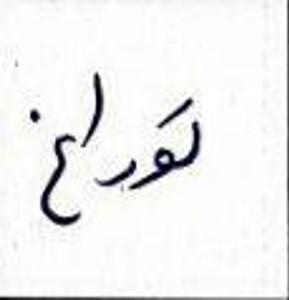 کوراغ